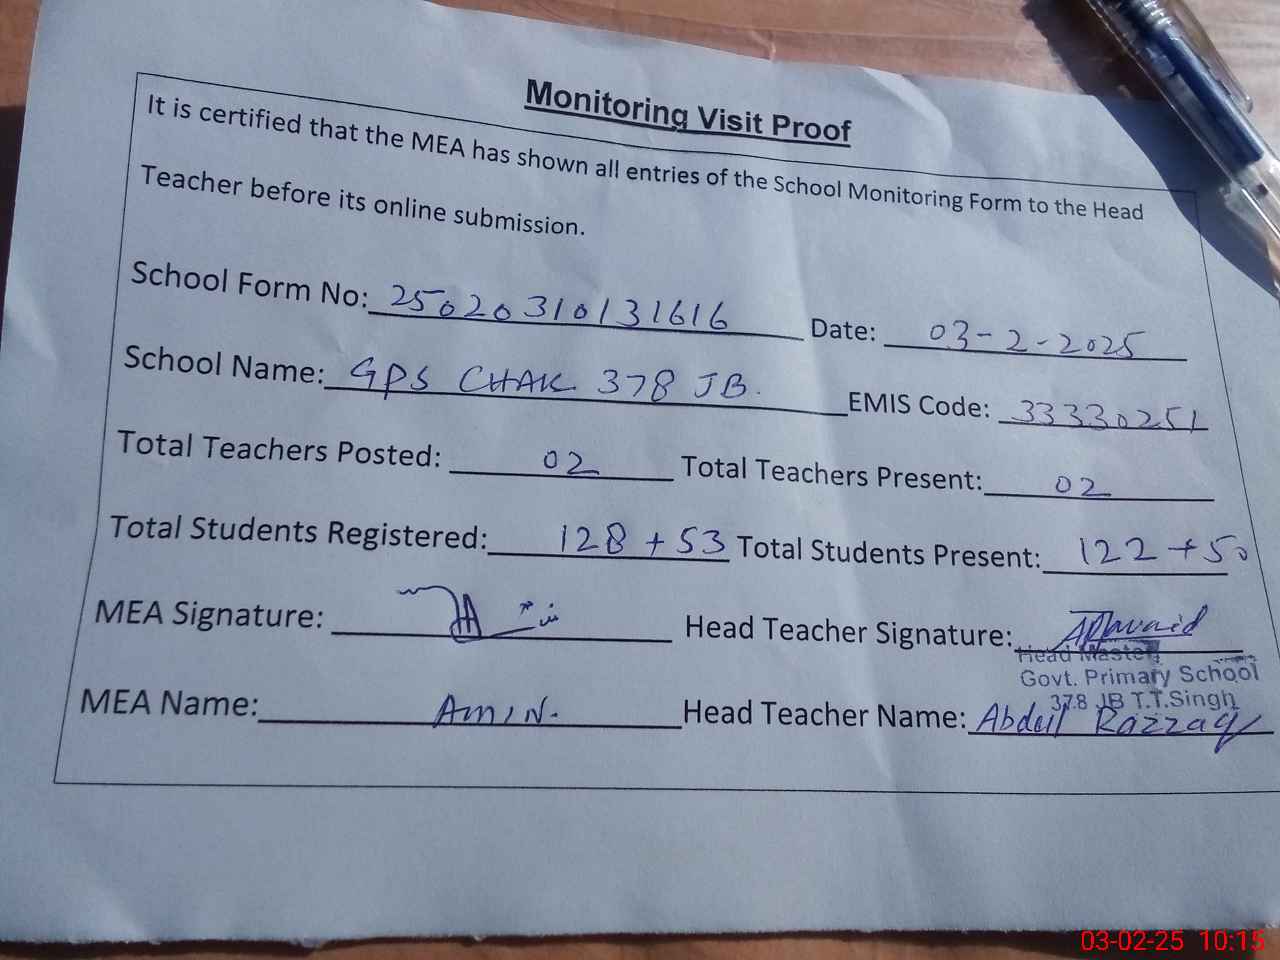 Monitoring Visit Proof
It is certified that the MEA has shown all entries of the School Monitoring Form to the Head
Teacher before its online submission.
School Form No: 25020310131616 Date: 03-2-2025
School Name: GPS CHAK 378 JB. EMIS Code: 33330251
Total Teachers Posted: 02 Total Teachers Present: 02
Total Students Registered: 128 + 53 Total Students Present: 122 + 50
MEA Signature: Head Teacher Signature:
Head Master
Govt. Primary School
378 JB T.T.Singh
MEA Name: Amin. Head Teacher Name: Abdul Razzaq
03-02-25 10:15